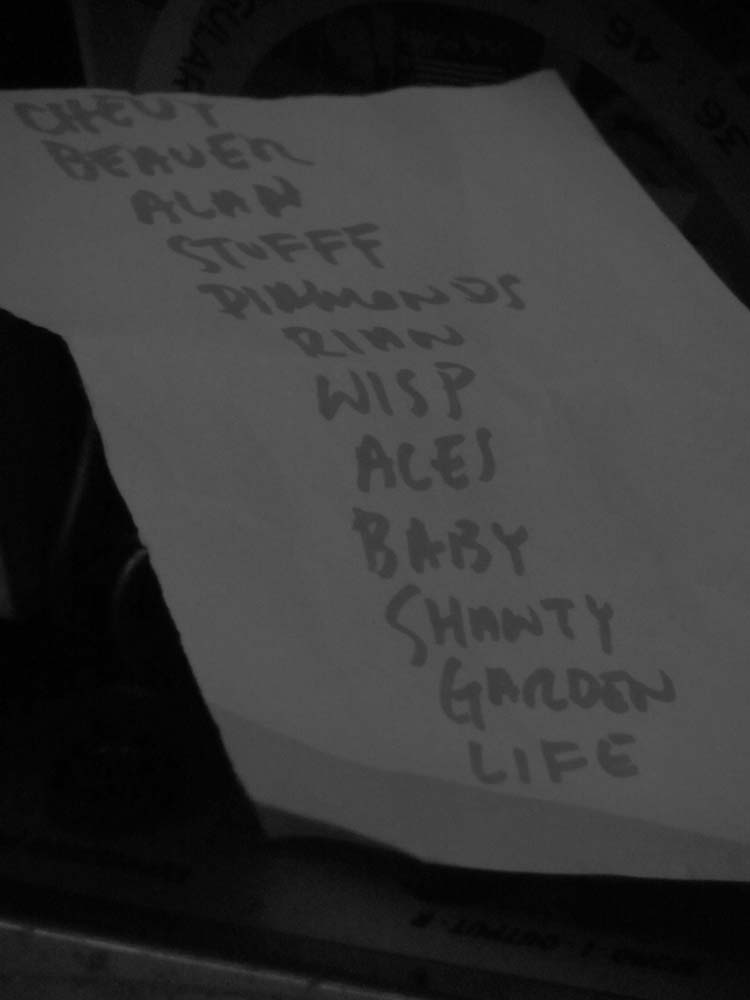 GULAR
46
36
CHEVY
BEAVER
ALAN
STUFFF
DIAMONDS
RIAN
WISP
ACES
BABY
SHANTY
GARDEN
LIFE
OUTPUT